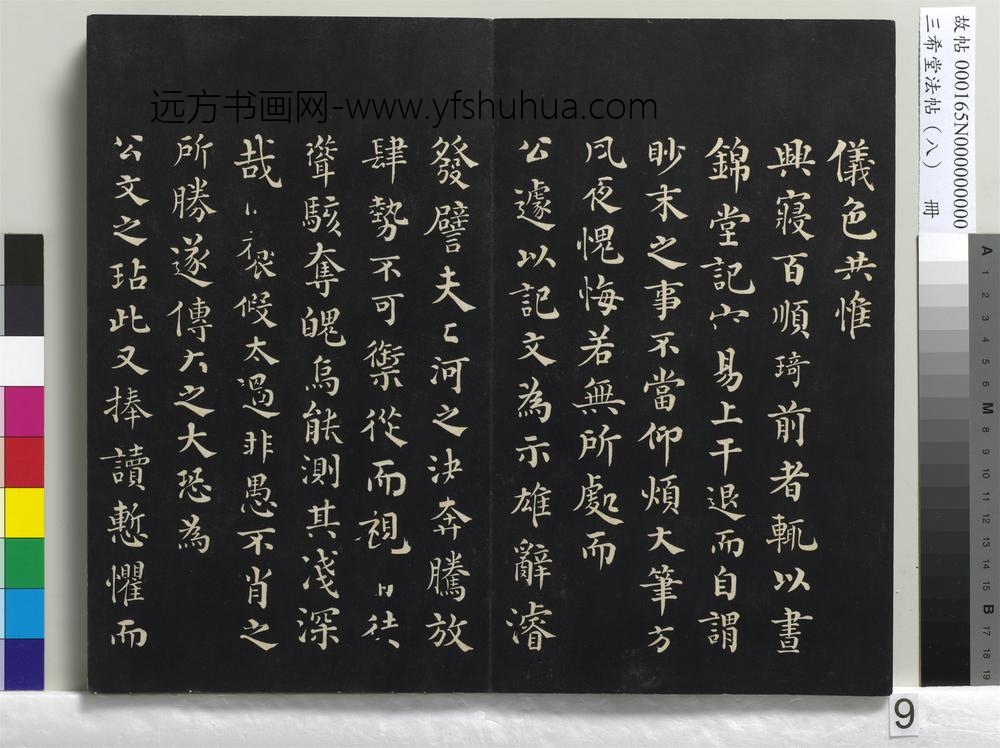 儀色共惟
興寢百順琦前者輒以晝
錦堂記
易上干退而自謂
眇末之事不當仰煩大筆方
夙夜愧悔若無所處而
公遽以記文為示雄辭濬
發譬夫
河之決奔騰放
肆勢不可禦從而視
徒
聳駭奪魄烏能測其淺深
哉
褒假太過非愚不肖之
所勝遂傳
之大恐為
公文之玷此又捧讀慙懼而
远方书画网-www.yfshuhua.com
故帖 000165N000000000
三希堂法帖(八) 冊
9
A 1 2 3 4 5 6 M 8 9 10 11 12 13 14 15 B 17 18 19